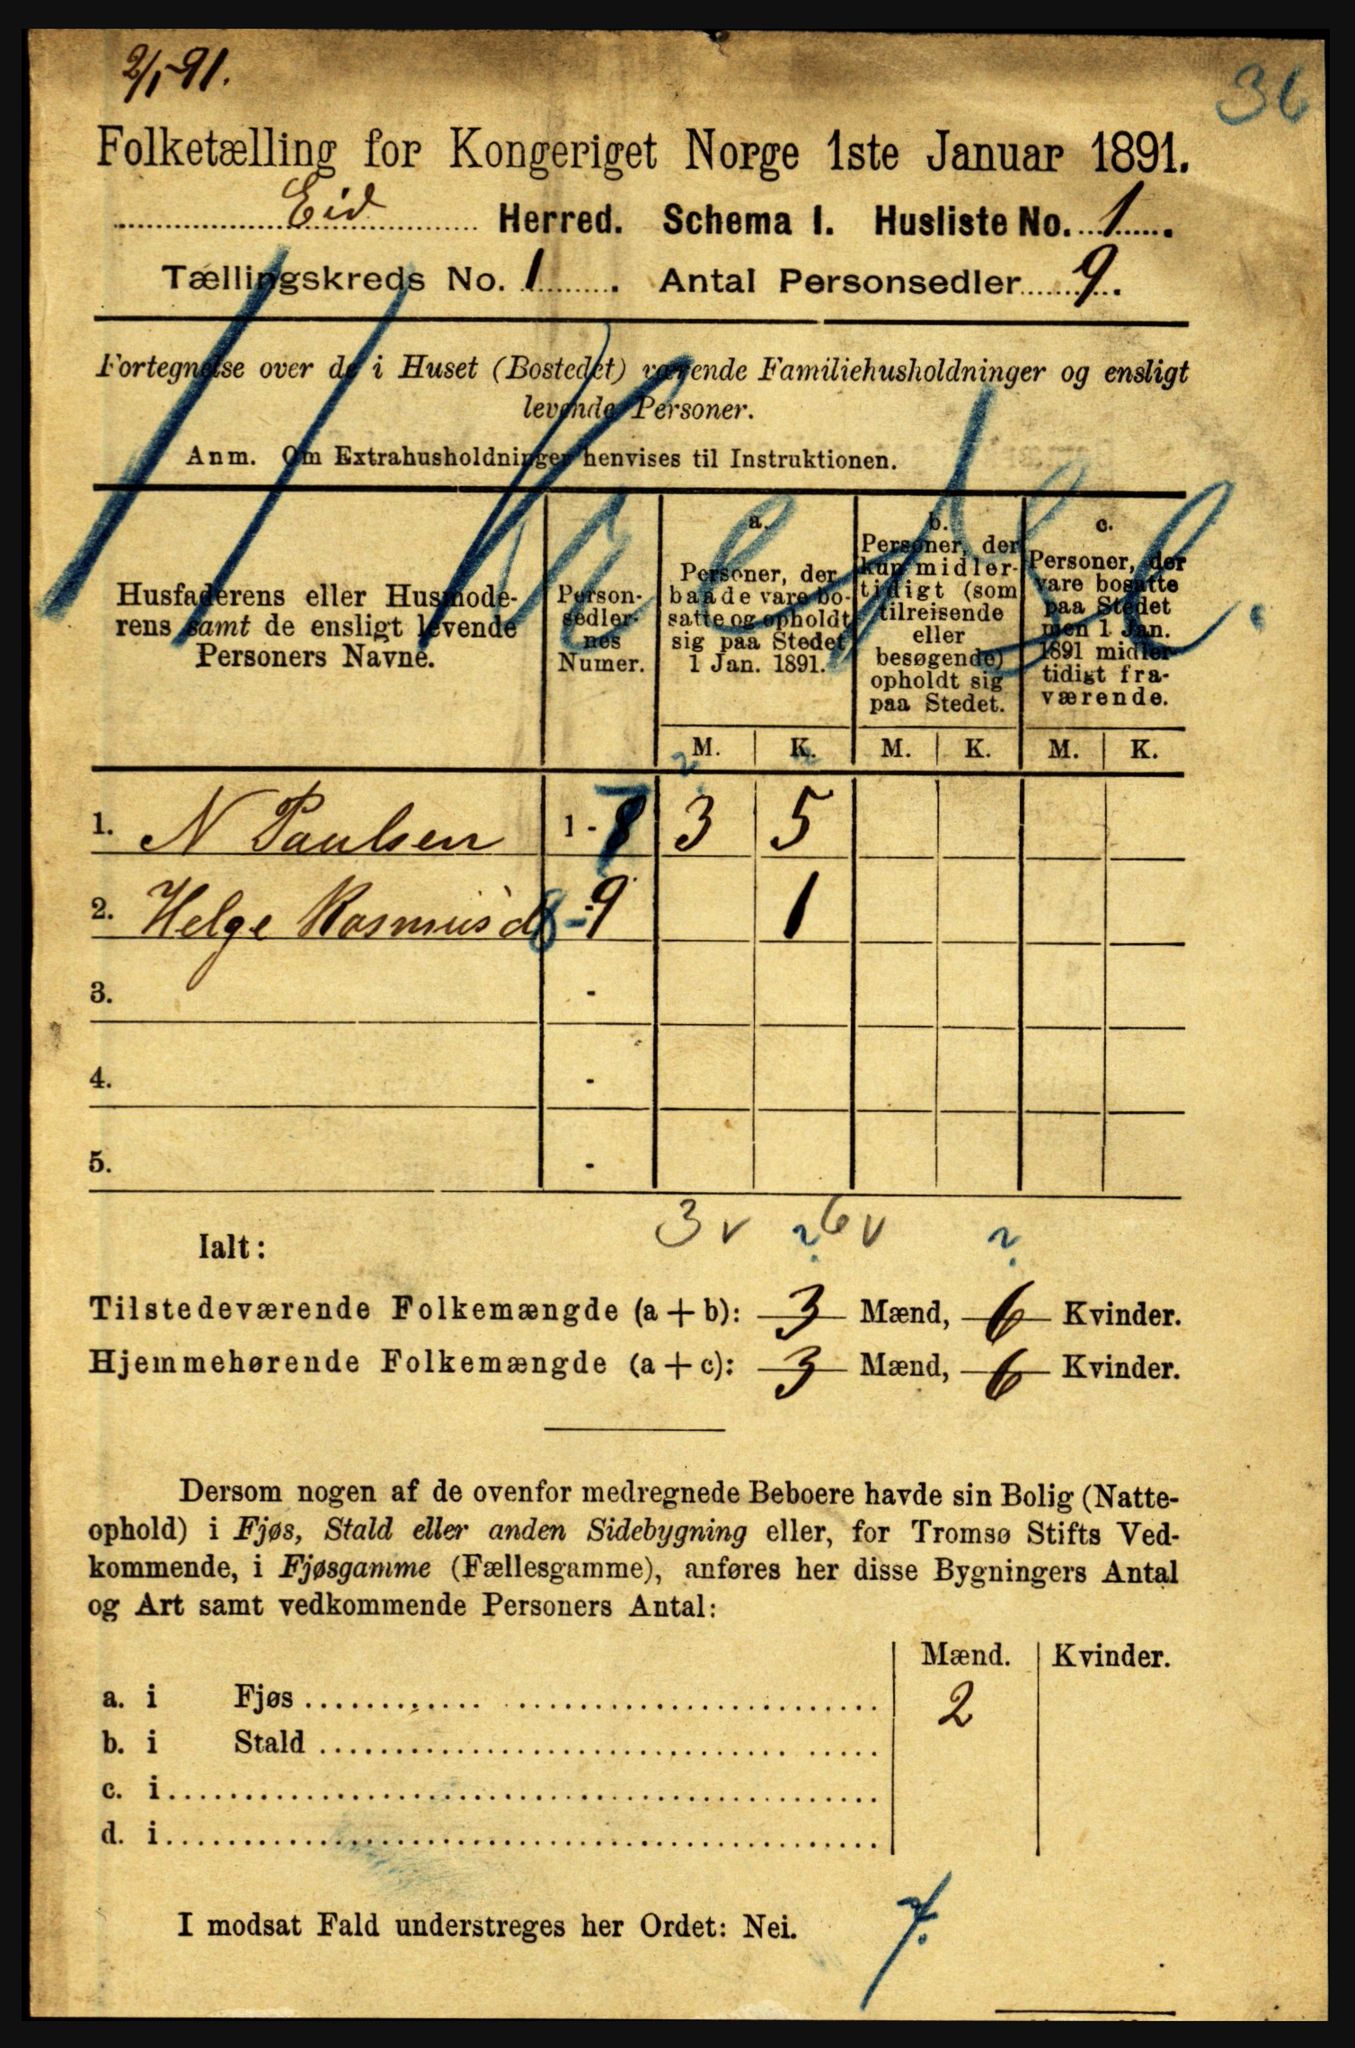 2/1-91.
36
Folketælling for Kongeriget Norge 1ste Januar 1891.
Eid Herred. Schema I. Husliste No. 1.
Tællingskreds No. 1. Antal Personsedler 9.
Fortegnelse over de i Huset (Bostedet) værende Familiehusholdninger og ensligt
levende Personer.
Anm. Om Extrahusholdninger henvises til Instruktionen.
Husfaderens eller Husmode-
rens samt de ensligt levende
Personers Navne.
Person-
sedler-
nes
Numer.
a.
Personer, der
baade vare bo-
satte og opholdt
sig paa Stedet
1 Jan. 1891.
b.
Personer, der
kun midler-
tidigt (som
tilreisende
eller
besøgende)
opholdt sig
paa Stedet.
c.
Personer, der
vare bosatte
paa Stedet
men 1 Jan.
1891 midler-
tidigt fra-
værende.
M. K. M. K. M. K.
1. N Paulsen 1 - 8 3 5
2. Helge Rasmus'd 8 - 9 1
3. -
4. -
5. -
3 v 6 v
Ialt:
Tilstedeværende Folkemængde (a + b): 3 Mænd, 6 Kvinder.
Hjemmehørende Folkemængde (a + c): 3 Mænd, 6 Kvinder.
Dersom nogen af de ovenfor medregnede Beboere havde sin Bolig (Natte-
ophold) i Fjøs, Stald eller anden Sidebygning eller, for Tromsø Stifts Ved-
kommende, i Fjøsgamme (Fællesgamme), anføres her disse Bygningers Antal
og Art samt vedkommende Personers Antal:
Mænd. Kvinder.
a. i Fjøs 2
b. i Stald
c. i
d. i
I modsat Fald understreges her Ordet: Nei.